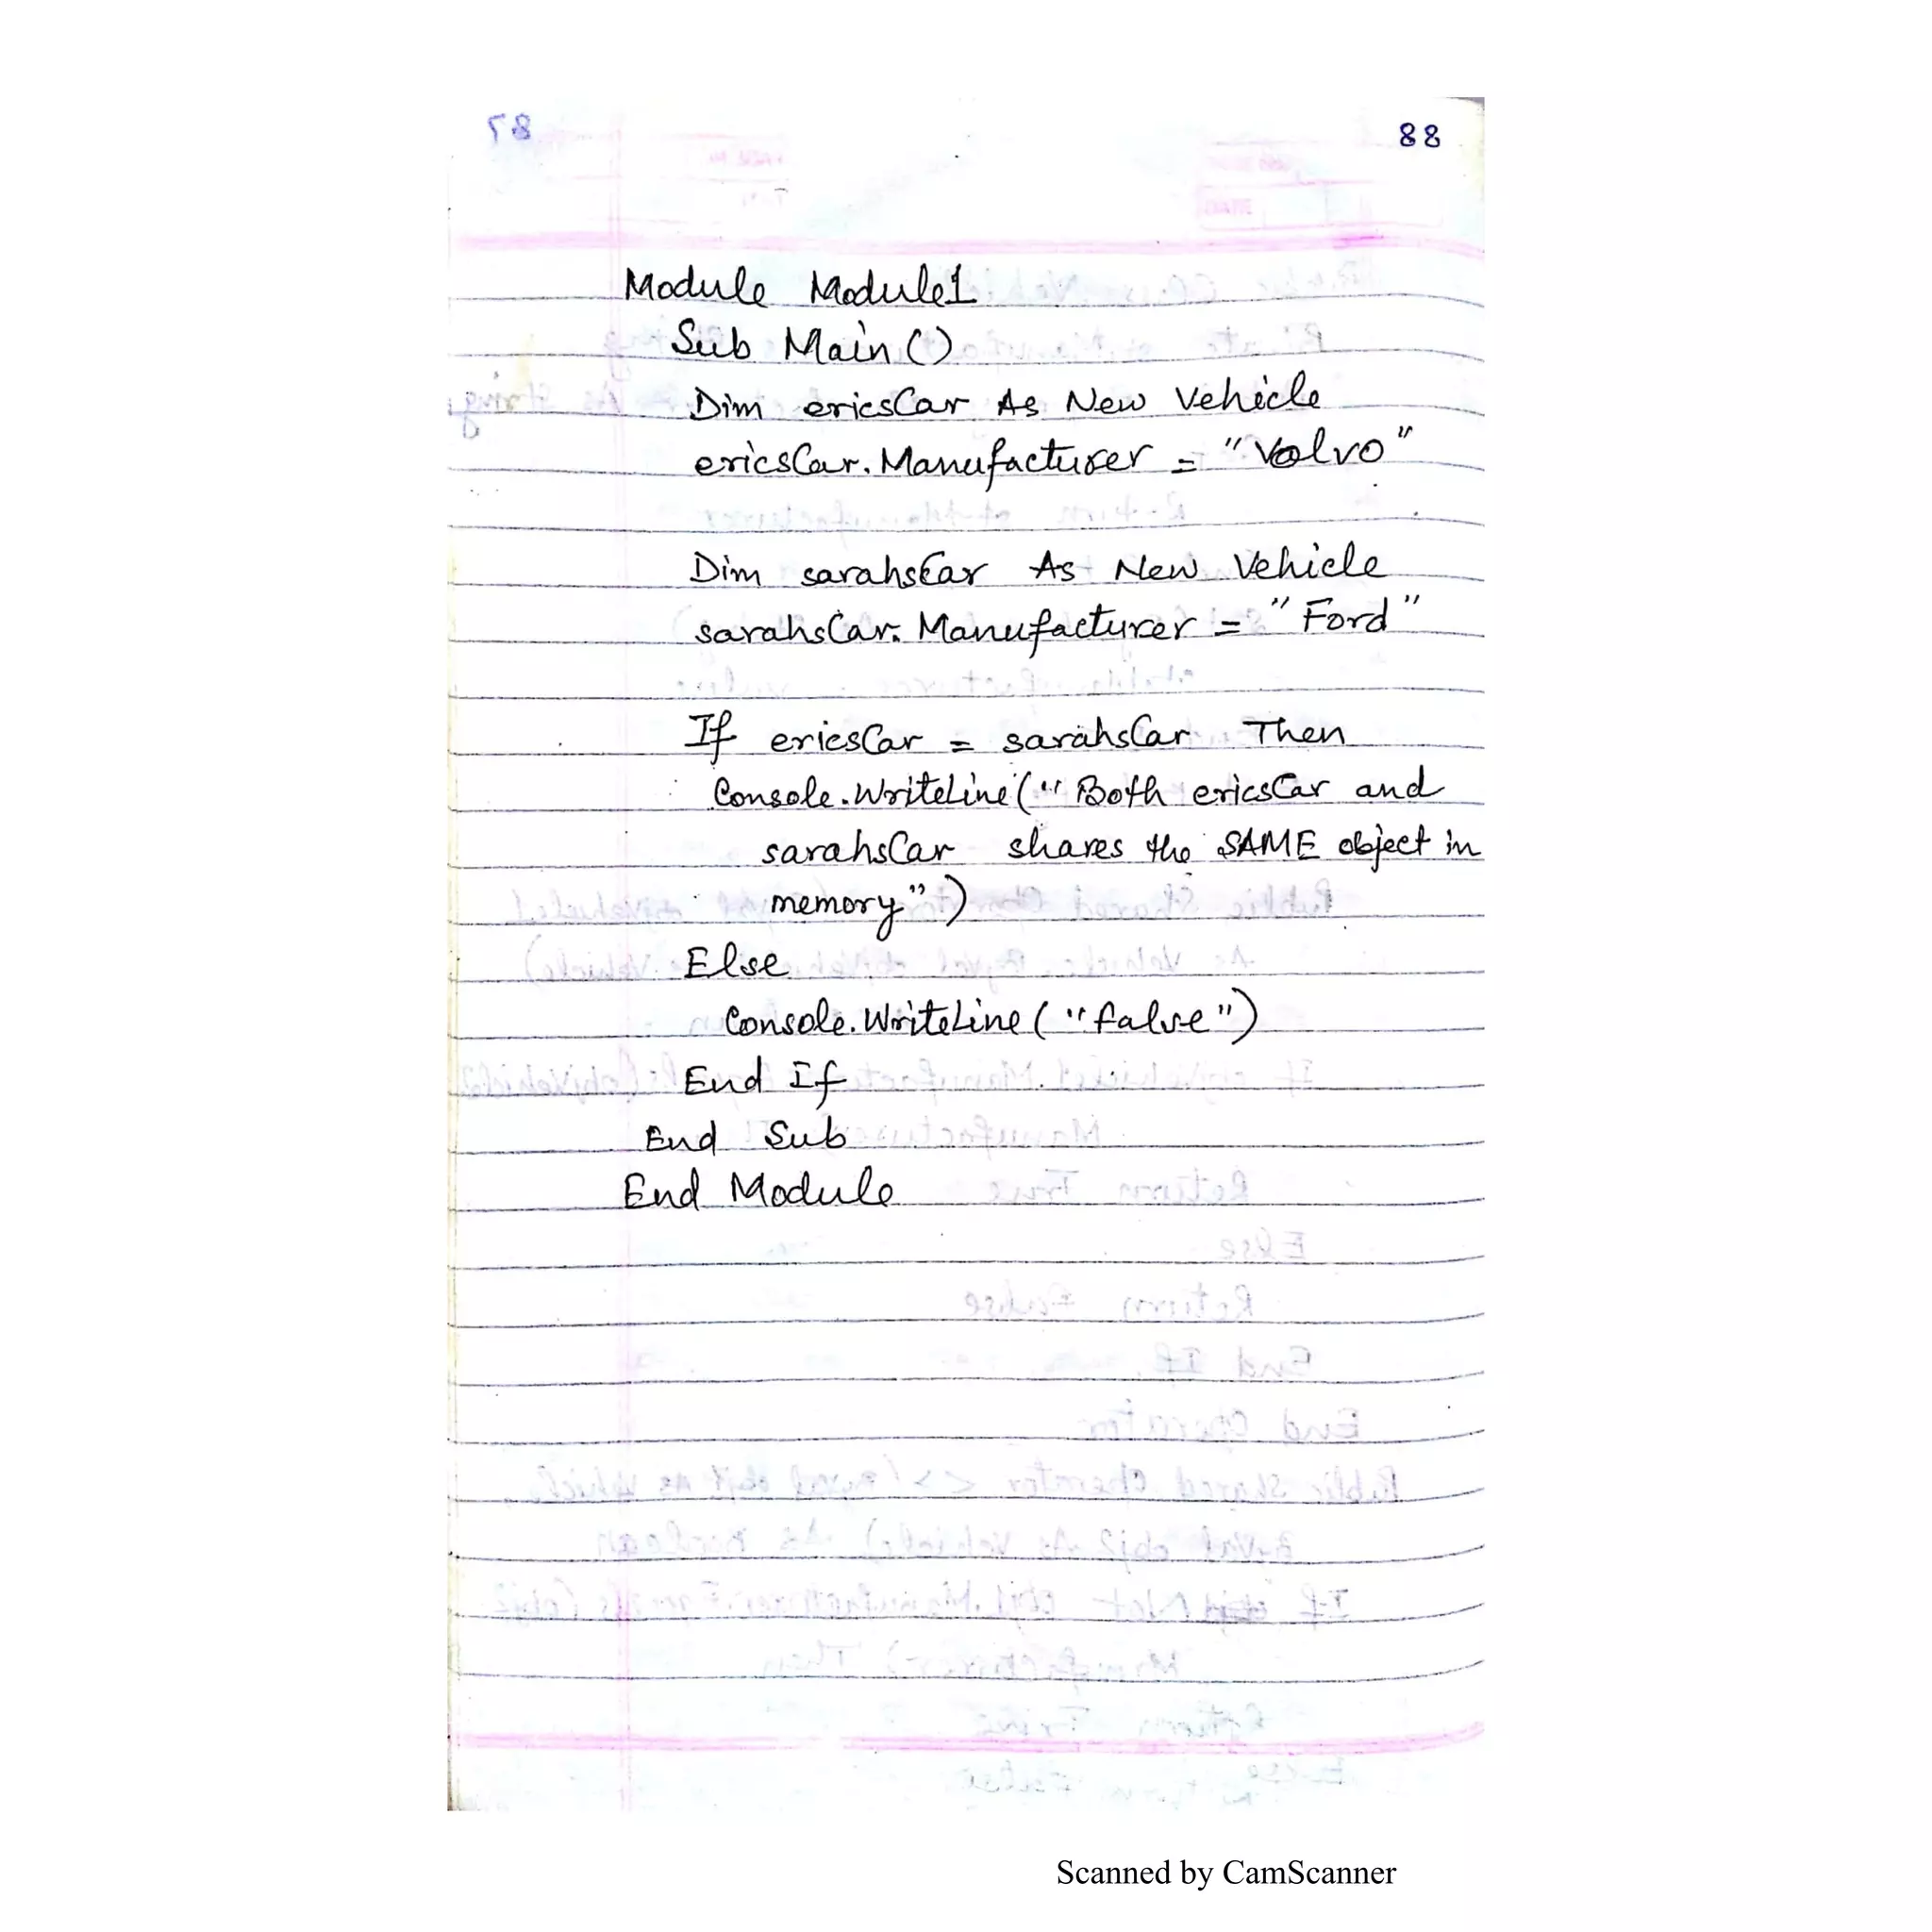 88
Module Module1
Sub Main()
Dim ericsCar As New Vehicle
ericsCar.Manufacturer = "Volvo"
Dim sarahsCar As New Vehicle
sarahsCar.Manufacturer = "Ford"
If ericsCar = sarahsCar Then
Console.WriteLine("Both ericsCar and
sarahsCar shares the SAME object in
memory")
Else
Console.WriteLine("false")
End If
End Sub
End Module
Scanned by CamScanner